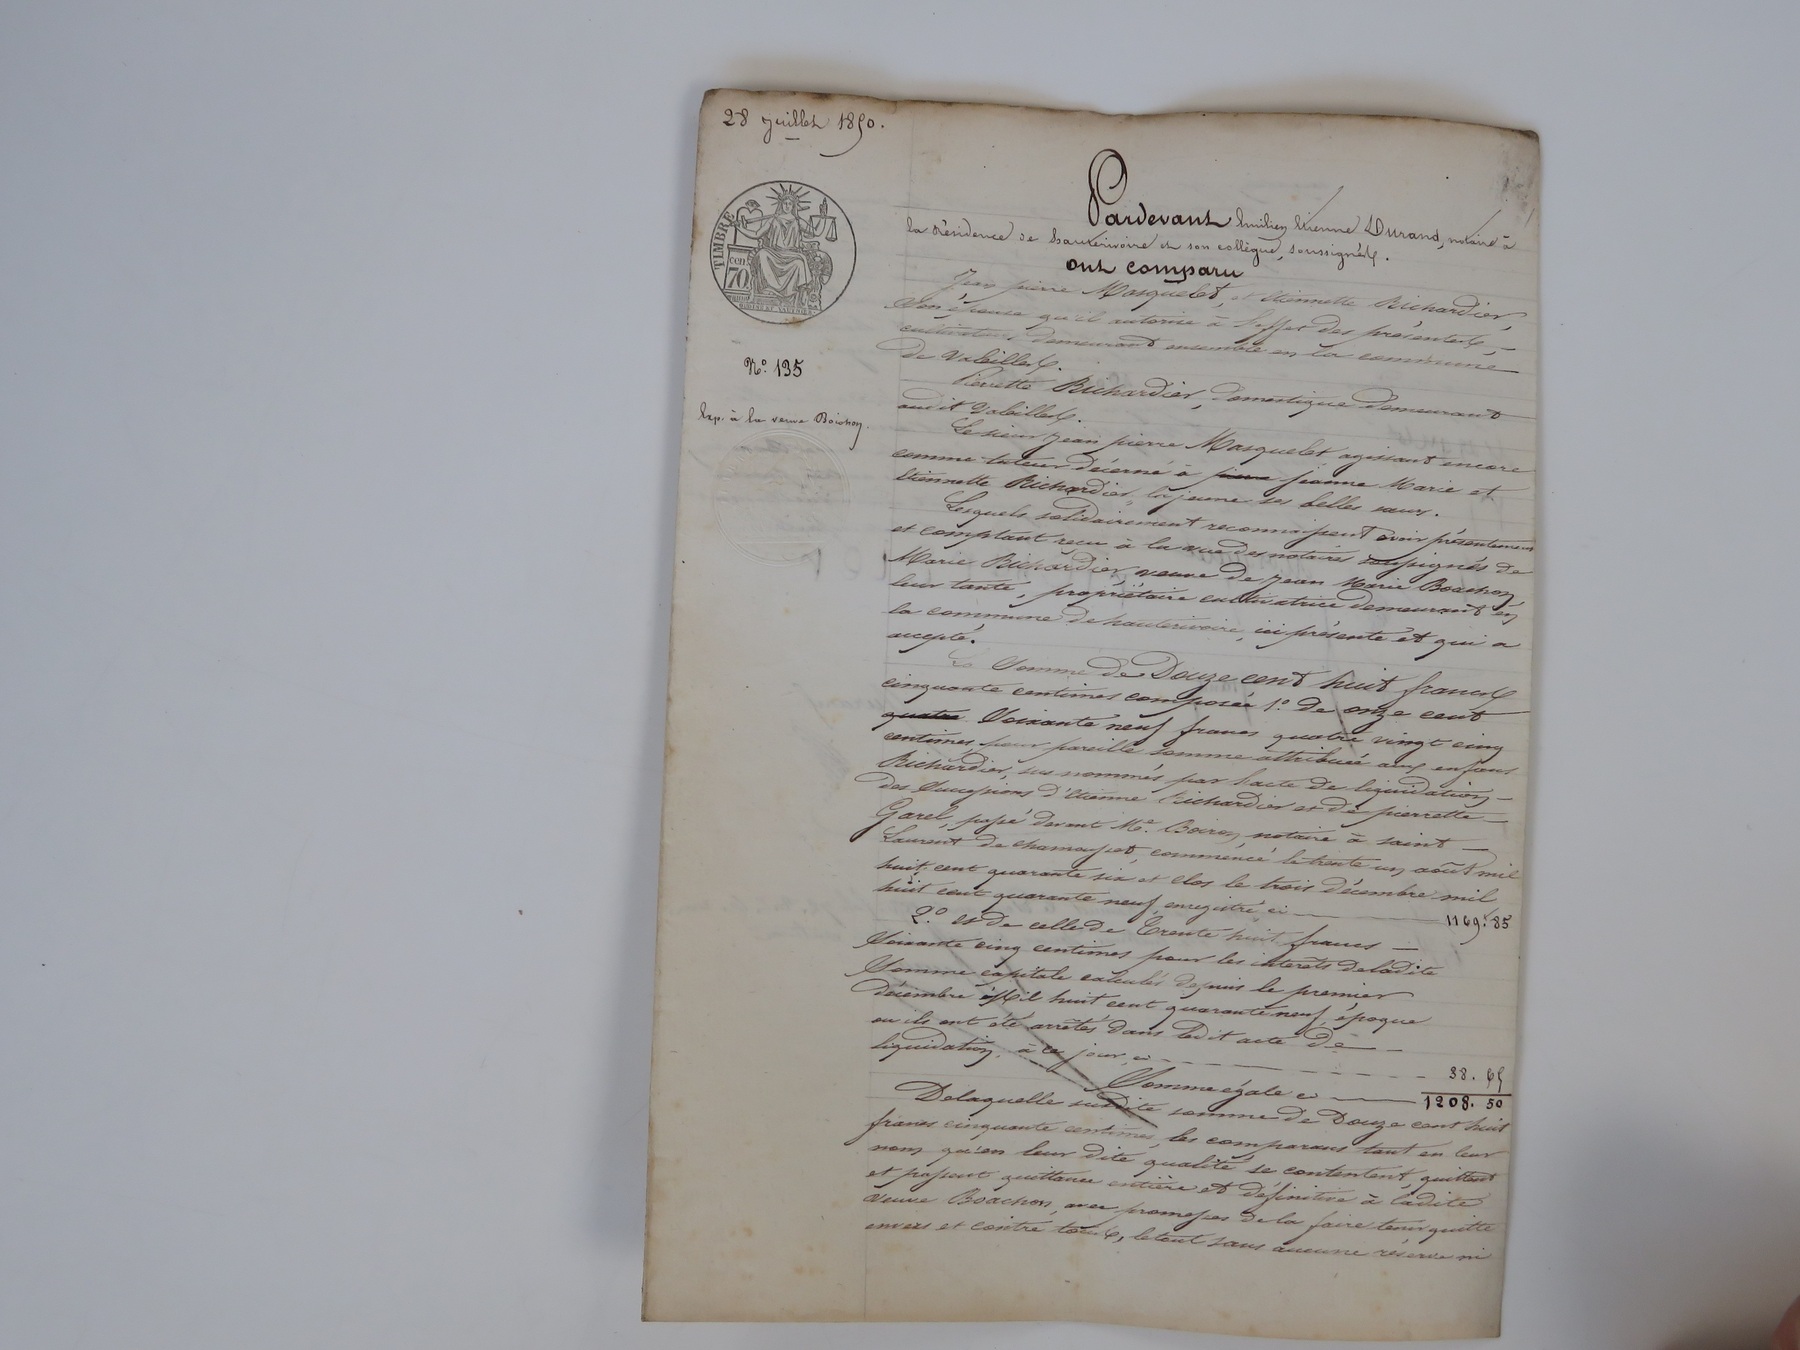 28 juillet 1850.
TIMBRE
cen.
70.
Pardevant Emilien Etienne Durand, notaire à
la Résidence de hauterivoire et son collègue, soussignés.
ont comparu
Jean pierre Masquelet, et etiennette Richardier,
Son épouse qu'il autorise à l'effet des présentes,
cultivateurs demeurant ensemble en la commune
de Valeilles.
N.o 135
Pierrette Richardier, domestique demeurant
audit Valeilles.
Exp. à la veuve Boichon.
Le sieur jean pierre Masquelet agissant encore
comme tuteur décerné à pierre jeanne Marie et
Etiennette Richardier, la jeune ses belles sœurs.
Lesquels solidairement reconnaissent avoir présentement
et comptant reçu à la vue des notaires soussignés de
Marie Richardier, veuve de jean Marie Boachon,
leur tante, propriétaire cultivatrice demeurant en
la commune de hauterivoire, ici présente et qui a
accepté.
La Somme de Douze cent huit francs
cinquante centimes composée 1.o de onze cent
quatre Soixante neuf francs quatre vingt cinq
centimes, pour pareille somme attribuée aux enfans
Richardier, sus nommés par l'acte de liquidation
des Successions d'Etienne Richardier et de pierrette
Garel, passé devant Me. Boiron notaire à saint
Laurent de chamousset, commencé le trente un août mil
huit cent quarante six et clos le trois décembre mil
huit cent quarante neuf, enregistré ci 1169. 85
2.o et de celle de Trente huit francs
Soixante cinq centimes pour les intérêts de ladite
Somme capitale calculés depuis le premier
décembre Mil huit cent quarante neuf, époque
où ils ont été arrêtés dans ledit acte de
liquidation, à ce jour, ci 38. 65
Somme égale ci 1208. 50
De laquelle susdite somme de Douze cent huit
francs cinquante centimes, les comparans tant en leur
nom qu'en leur dite qualité se contentent, quittent
et passent quittance entière et définitive à ladite
veuve Boachon, avec promesses de la faire tenir quitte
envers et contre tous, le tout sans aucune réserve ni